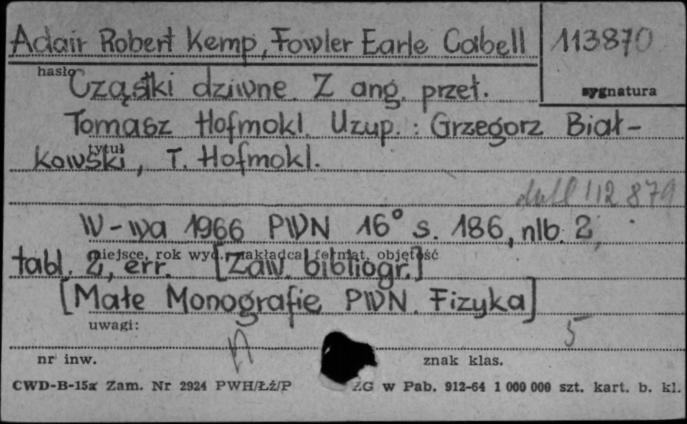 Adair Robert Kemp, Fowler Earle Cabell 113870
hasło sygnatura
Cząstki dziwne. Z ang. przeł.
Tomasz Hofmokl. Uzup.: Grzegorz Biał-
kowski, T. Hofmokl.
tytuł
dubl 112 879
W-wa 1966 PWN 16° s. 186, nlb. 2,
miejsce, rok wyd. nakładca, format, objętość
tabl. 2, err. [Zaw. bibliogr.]
[Małe Monografie PWN. Fizyka]
uwagi:
5
nr inw. znak klas.
CWD-B-15a Zam. Nr 2924 PWH/Łż/P ZG w Pab. 912-64 1 000 000 szt. kart. b. kl.